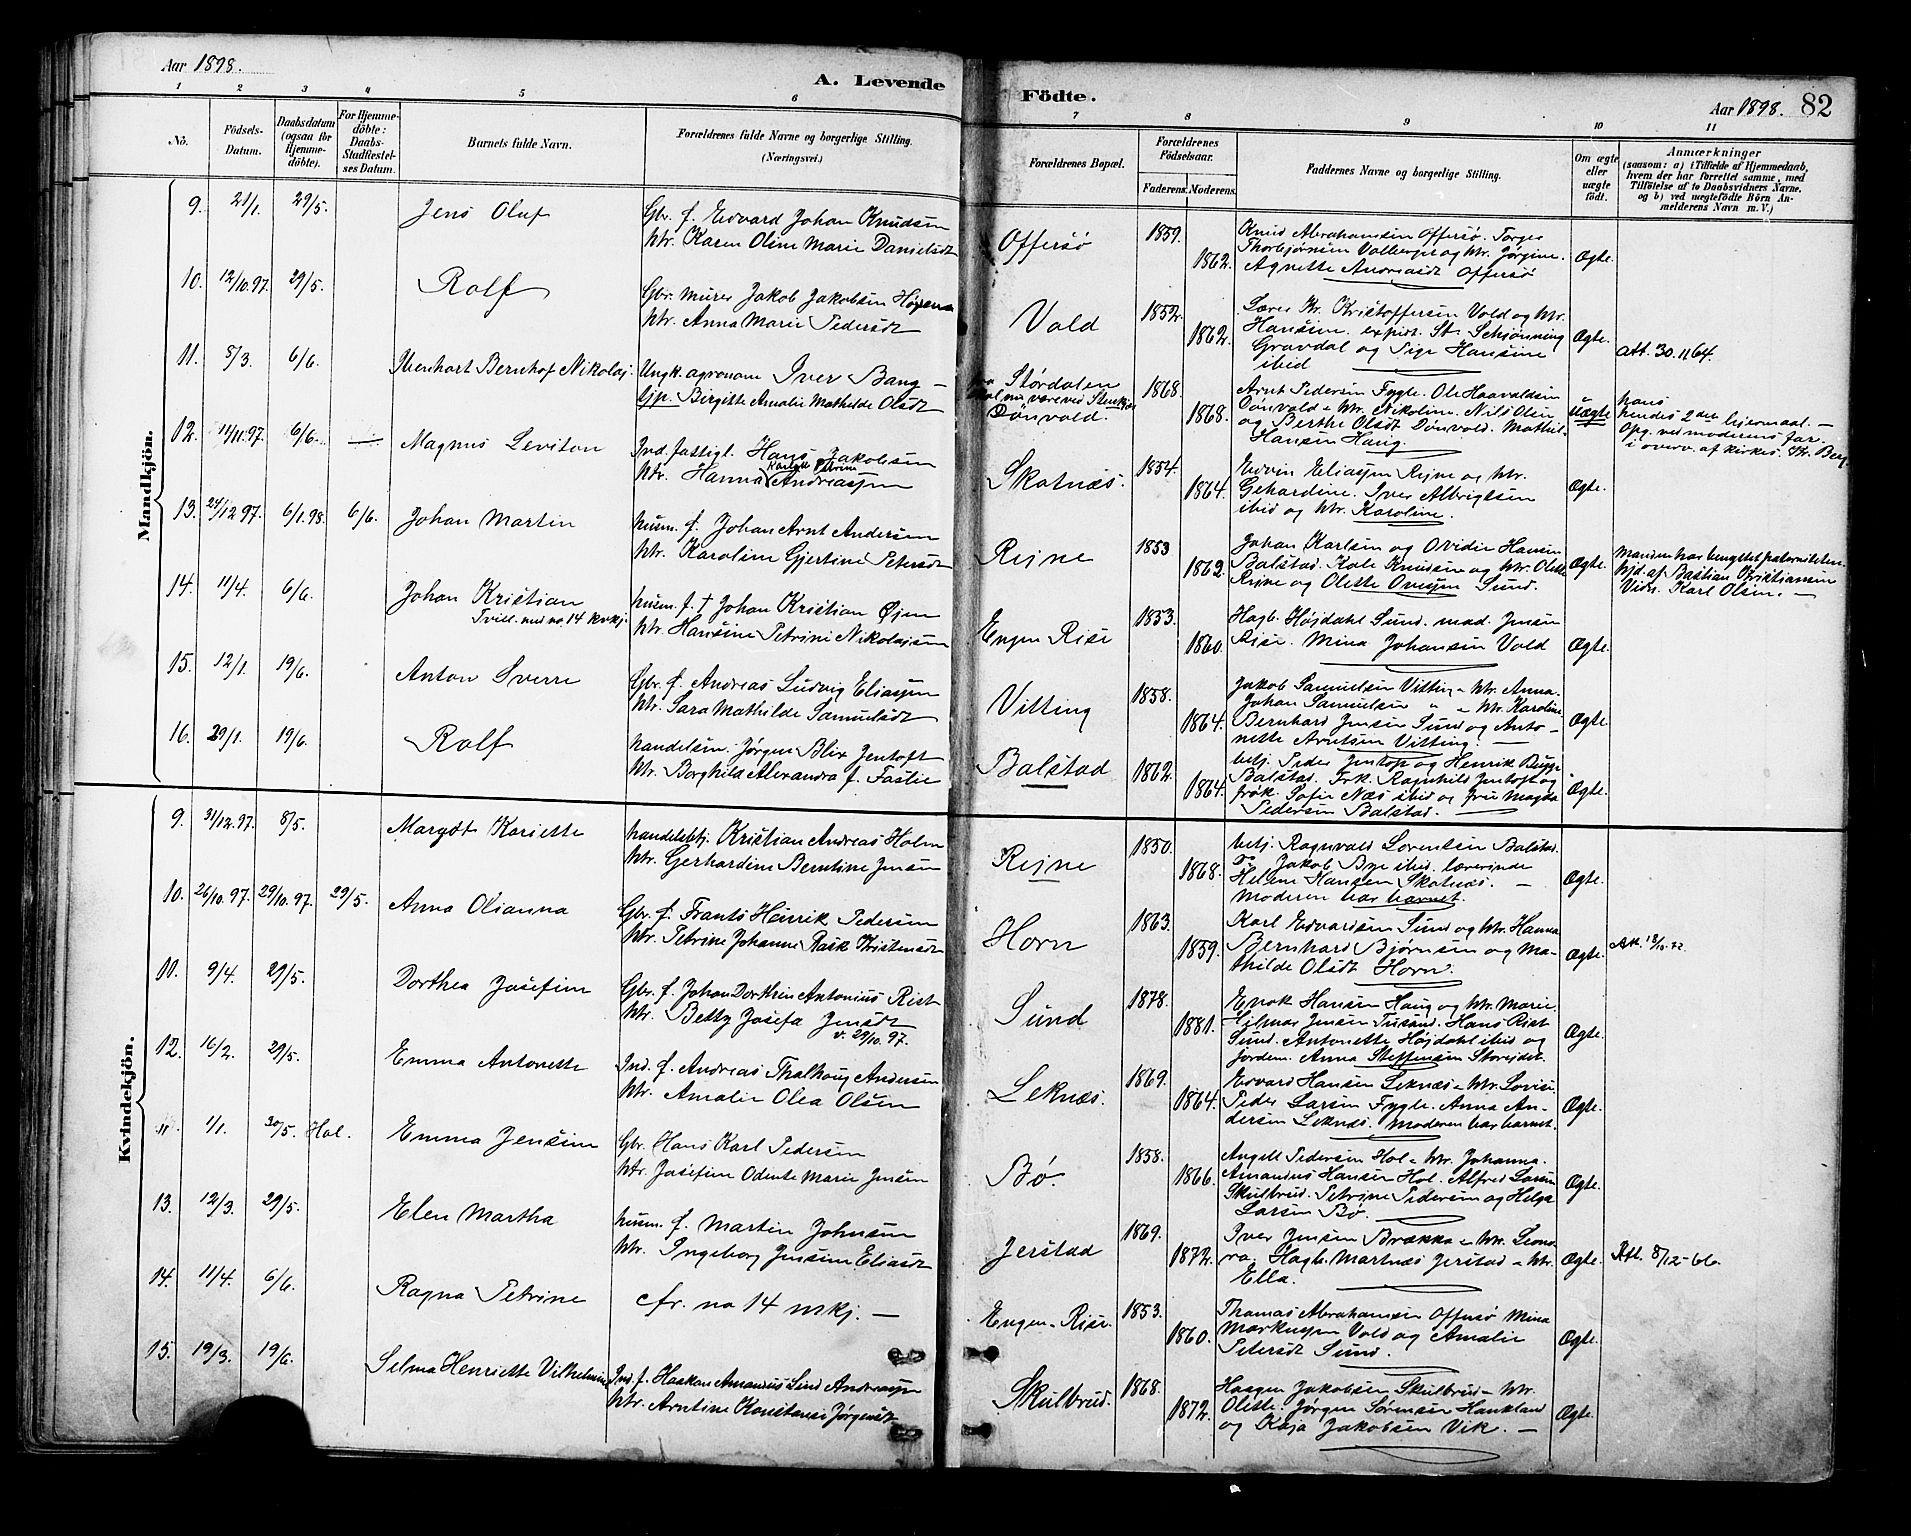 Aar 1898.
A. Levende
Födte.
Aar 1898. 82
1 2 3 4 5 6 7 8 9 10 11
No.
Födsels-
Datum.
Daabsdatum
(ogsaa for
Hjemme-
döbte).
For Hjemme-
döbte:
Daabs-
Stadfæstel-
ses Datum.
Barnets fulde Navn.
Forældrenes fulde Navne og borgerlige Stilling.
(Næringsvei.)
Forældrenes Bopæl.
Forældrenes
Födselsaar.
Faderens. Moderens.
Faddernes Navne og borgerlige Stilling.
Om ægte
eller
uægte
födt.
Anmærkninger
(saasom: a) i Tilfælde af Hjemmedaab,
hvem der har forrettet samme, med
Tilföielse af to Daabsvidners Navne.
og b) ved uægtefödte Börn An-
melderens Navn m. V.)
Mandkjön.
9. 21/1. 29/5. Jens Oluf
Gbr. f. Edvard Johan Knudsen
htr. Karen Oline Marie Danielsdt
Offersø 1859. 1862.
Knud Abrahamsen Offersø. Torger
Thorbjørnsen Valberget og htr. Jørgine.
Agnette Andreasdt Offersø
Ægte.
10. 12/10.97. 29/5. Rolf
Gbr. murer Jakob Jakobsen
htr. Anna Marie Pedersdt
Vold 1852. 1862.
Lærer Kr. Kristoffersen Vold og htr.
Hansine. exped. St. Schjønning
Gravdal og Pige Hansine
ibid
Ægte. att. 30.11.64.
11. 5/3. 6/6. Bernhof Nikolai
Ungk. agronom Iver Bang —
tjp. Birgitte Amalie Mathilde Olsdt
Størdalen
Dønvold. 1868. 1868.
Arnt Pedersen Fygle. Ole Haavaldsen
Dønvold – htr. Nikoline. Nils Olsen
og Berthe Olsdt Dønvold. Mathil-
Hansen Haug.
uægte
hans
hendes 2det lejermaal. —
Opg. ved moderens far.
i overv. af kirkes. Berg
12. 11/11.97. 6/6. — Magnus Leviton
Ind. fattigl. Hans Jakobsen
htr. Hanna Andreassen
Petrine
Skotnæs. 1854. 1864.
Edvin Eliassen Rejne og htr.
Gehardine. Iver Albrigtsen
ibid og htr. Karoline.
Ægte.
13. 24/12.97. 6/1.98. 6/6. Johan Martin
husm. f. Johan Arnt Andersen
htr. Karoline Gjertine Petersdt
Rejne 1853 1862.
Johan Karlsen og Ovidie Hansen
Balstad. Kole Knudsen og htr. Olette
Rejne og Olette Ovesen Sund.
Ægte.
Manden har benyttet paterniteten.
Hjd. af Bastian Christiansen
Vidn. Karl Olsen. —
14. 11/4. 6/6. Johan Kristian
Tvill. med no. 14 kvkj.
husm. f. † Johan Kristian Øjen
htr. Hansine Petrine Nikolajsen
Engen Rise 1853. 1860.
Hagb. Højdahl Sund. mad. Jensen
Rise. Mina Johansen Vold
Ægte.
15. 12/1. 19/6. Anton Sverre
Gbr. f. Andreas Ludvig Eliassen
htr. Sara Mathilde Samuelsdt
Vitting 1858. 1864.
Jakob Samuelsen Vitting – htr. Anna.
Johan Samuelsen " – htr. Karoline
Bernhard Jensen Sund og Anto-
nette Arntsen Vitting. —
Ægte.
16. 29/1. 19/6. Rolf
handelsm. Jørgen Blix Jentoft
htr. Borghild Alexandra f. Fastie
Balstad 1862. 1864.
betj. Peder Jentoft og Henrik Bugge
Balstad. Frk. Ragnhild Jentoft og
frøk. Sofie Næs ibid og fru Magda
Pedersen Balstad. —
Ægte.
Kvindekjön.
9. 31/12.97. 8/5. Margit Kariette
handelsbtj. Kristian Andreas Holm
htr. Gerhardine Berntine Jensen
Rejne 1850. 1868.
betj. Ragnvald Lorentsen Balstad.
Do Jakob Bye ibid. lærerinde
Helene Hansen Skotnæs. —
Moderen bar barnet.
Ægte.
10. 26/10.97. 29/10.97. 29/5. Anna Olianna
Gbr. f. Frants Henrik Pedersen
htr. Petrine Johanne Rask Kristensdt
Horn 1863. 1859.
Karl Edvardsen Sund og htr. Hanna
Bernhard Bjørnsen og Ma-
thilde Olsdt Horn.
Ægte.
11. 9/4. 29/5. Dorthea Josefine
Gbr. f. Johan Dorthin Antonius Rist
htr. Betty Josefa Jensdt
v. 29/10.97.
Sund 1878. 1881.
Enok Hansen Haug og htr. Marie
Hilmar Jensen Tusand. Hans Rist
Sund. Antonette Højdahl ibid og
Jordem. Anna Steffensen Storejdet.
Ægte.
12. 16/2. 29/5. Emma Antonette
Ind. f. Andreas Thalhoug Andersen
htr. Amalie Olea Olsen
Leknæs. 1869. 1864.
Edvard Hansen Leknæs – htr. Lovise.
Peder Larsen Fygle. Anna An-
dersen Leknæs. Moderen bar barnet.
Ægte.
1/1. 30/5. Hol. Emma Jensine
Gbr. Hans Karl Pedersen
htr. Josefine Odente Marie Jensen
Bø. 1858. 1866.
Angell Pedersen Hol – htr. Johanna.
Amandus Hansen Hol. Alfred Larsen
Skulbrud. Petrine Pedersen og Helga
Larsen Bø.
Ægte.
13. 12/3. 29/5. Elen Martha
husm. f. Martin Johnsen
htr. Ingeborg Jensine Eliasdt
Jerstad 1869. 1872.
Iver Jensen Brækka – htr. Leono-
ra. Hagb. Martnæs Jerstad – htr.
Ella.
Ægte. Att. 8/12-66.
14. 11/4. 6/6. Ragna Petrine
cfr. no 14 mkj. —
Engen – Rise. 1853. 1860.
Thomas Abrahamsen Offersø Mina
Markussen Vold og Amalie
Petersdt Sund.
Ægte.
15. 19/3. 19/6. Selma Henriette Vilhelmine
Ind. f. Haakon Amandus Lind Andreassen
htr. Arntine Konstanse Jørgensdt
Skulbrud. 1868. 1872.
Haagen Jakobsen Skulbrud – htr.
Olette. Jørgen Sørensen Haukland
og Kaja Jakobsen Vik. —
Ægte.